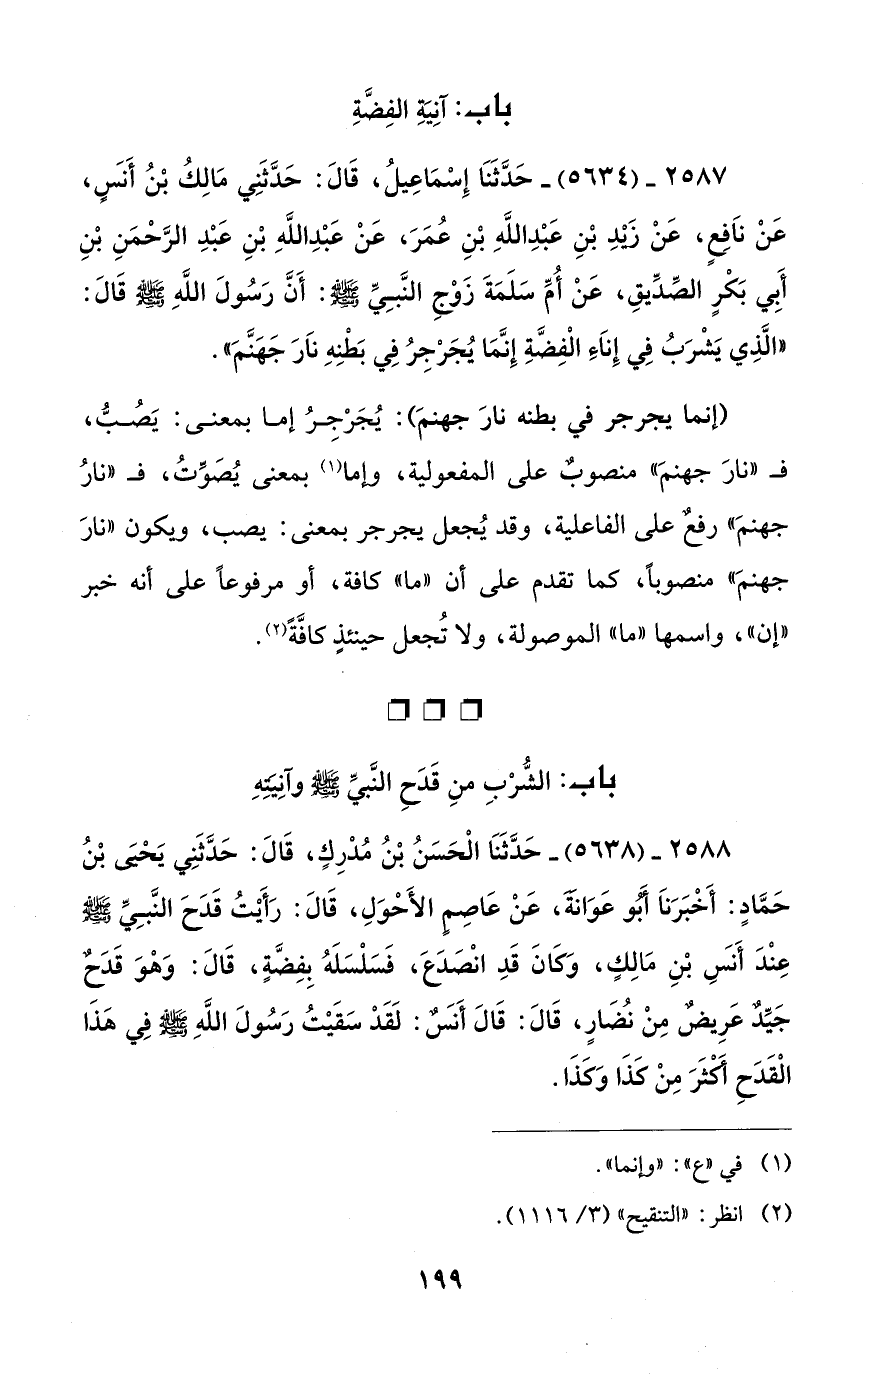 باب: آنِيَةِ الفِضَّةِ
٢٥٨٧ ـ (٥٦٣٤) ـ حَدَّثَنَا إِسْمَاعِيلُ، قَالَ: حَدَّثَنِي مَالِكُ بْنُ أَنَسٍ،
عَنْ نَافِعٍ، عَنْ زَيْدِ بْنِ عَبْدِاللَّهِ بْنِ عُمَرَ، عَنْ عَبْدِاللَّهِ بْنِ عَبْدِ الرَّحْمَنِ بْنِ
أَبِي بَكْرٍ الصِّدِّيقِ، عَنْ أُمِّ سَلَمَةَ زَوْجِ النَّبِيِّ ﷺ: أَنَّ رَسُولَ اللَّهِ ﷺ قَالَ:
«الَّذِي يَشْرَبُ فِي إِنَاءِ الْفِضَّةِ إِنَّمَا يُجَرْجِرُ فِي بَطْنِهِ نَارَ جَهَنَّمَ».
(إنما يجرجر في بطنه نارَ جهنمَ): يُجَرْجِرُ إما بمعنى: يَصُبُّ،
فـ «نارَ جهنمَ» منصوبٌ على المفعولية، وإما(١) بمعنى يُصَوِّتُ، فـ «نارُ
جهنمَ» رفعٌ على الفاعلية، وقد يُجعل يجرجر بمعنى: يصب، ويكون «نارَ
جهنمَ» منصوباً، كما تقدم على أن «ما» كافة، أو مرفوعاً على أنه خبر
«إن»، واسمها «ما» الموصولة، ولا تُجعل حينئذٍ كافَّةً(٢).
❐ ❐ ❐
باب: الشُّرْبِ منِ قَدَحِ النَّبِيِّ ﷺ وآنِيَتِهِ
٢٥٨٨ ـ (٥٦٣٨) ـ حَدَّثَنَا الْحَسَنُ بْنُ مُدْرِكٍ، قَالَ: حَدَّثَنِي يَحْيَى بْنُ
حَمَّادٍ: أَخْبَرَنَا أَبُو عَوَانَةَ، عَنْ عَاصِمٍ الأَحْوَلِ، قَالَ: رَأَيْتُ قَدَحَ النَّبِيِّ ﷺ
عِنْدَ أَنَسِ بْنِ مَالِكٍ، وَكَانَ قَدِ انْصَدَعَ، فَسَلْسَلَهُ بِفِضَّةٍ، قَالَ: وَهْوَ قَدَحٌ
جَيِّدٌ عَرِيضٌ مِنْ نُضَارٍ، قَالَ: قَالَ أَنَسٌ: لَقَدْ سَقَيْتُ رَسُولَ اللَّهِ ﷺ فِي هَذَا
الْقَدَحِ أَكْثَرَ مِنْ كَذَا وَكَذَا.
(١) في «ع»: «وإنما».
(٢) انظر: «التنقيح» (٣/ ١١١٦).
١٩٩